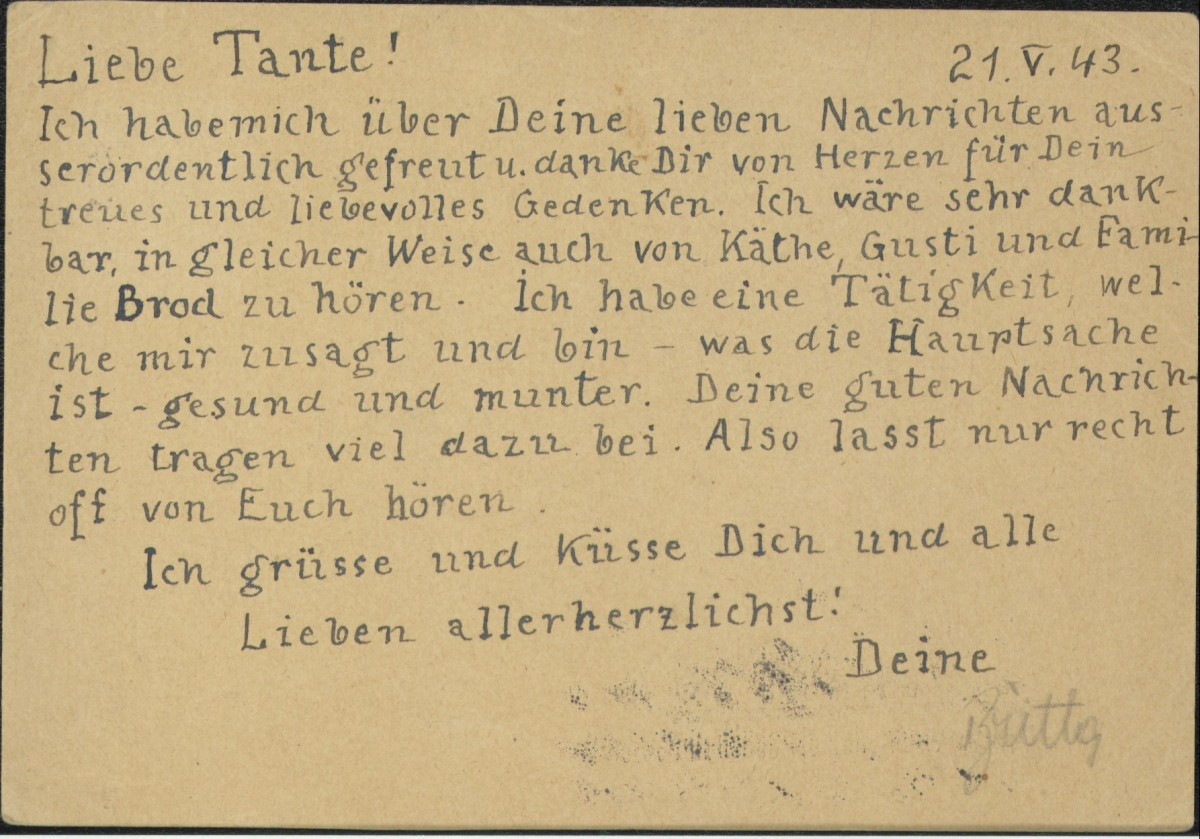 Liebe Tante! 21.V.43.
Ich habe mich über Deine lieben Nachrichten aus-
serordentlich gefreut u. danke Dir von Herzen für Dein
treues und liebevolles Gedenken. Ich wäre sehr dank-
bar, in gleicher Weise auch von Käthe, Gusti und Fami-
lie Brod zu hören. Ich habe eine Tätigkeit, wel-
che mir zusagt und bin - was die Hauptsache
ist - gesund und munter. Deine guten Nachrich-
ten tragen viel dazu bei. Also lasst nur recht
oft von Euch hören.
Ich grüsse und küsse Dich und alle
Lieben allerherzlichst!
Deine